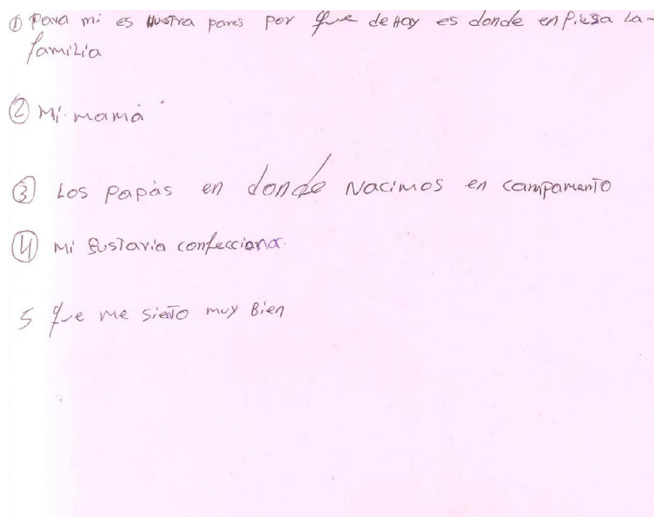 ① Para mi es Nustra pares por que de Hay es donde en Piesa La-
familia
② Mi mamá
③ Los papás en donde Nacimos en campamento
④ Mi gustaria confecciona.
5 que me sieto muy Bien